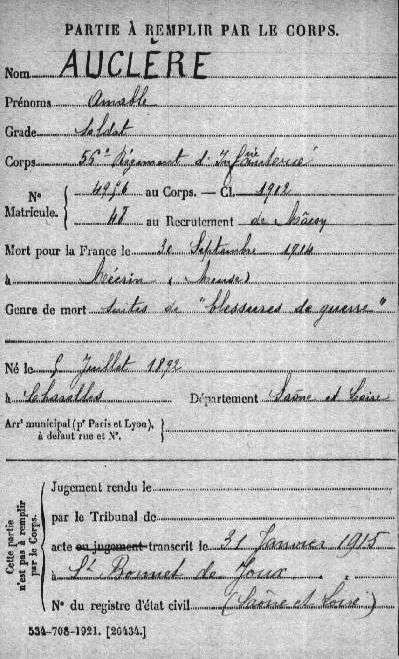 PARTIE À REMPLIR PAR LE CORPS.
Nom AUCLÈRE
Prénoms Amable
Grade Soldat
Corps 56e Régiment d'Infanterie
N° Matricule. 4976 au Corps. — Cl. 1912
48 au Recrutement de Mâcon
Mort pour la France le 20 Septembre 1914
à Mécrin (Meuse)
Genre de mort suites de "blessures de guerre"
Né le 5 Juillet 1892
à Département Saône et Loire
Arrt municipal (pr Paris et Lyon), à défaut rue et N°.
Cette partie n'est pas à remplir par le Corps.
Jugement rendu le
par le Tribunal de
acte ou jugement transcrit le 31 Janvier 1915
à St Bonnet de Joux
N° du registre d'état civil (Saône et Loire)
534-708-1921. [26434.]